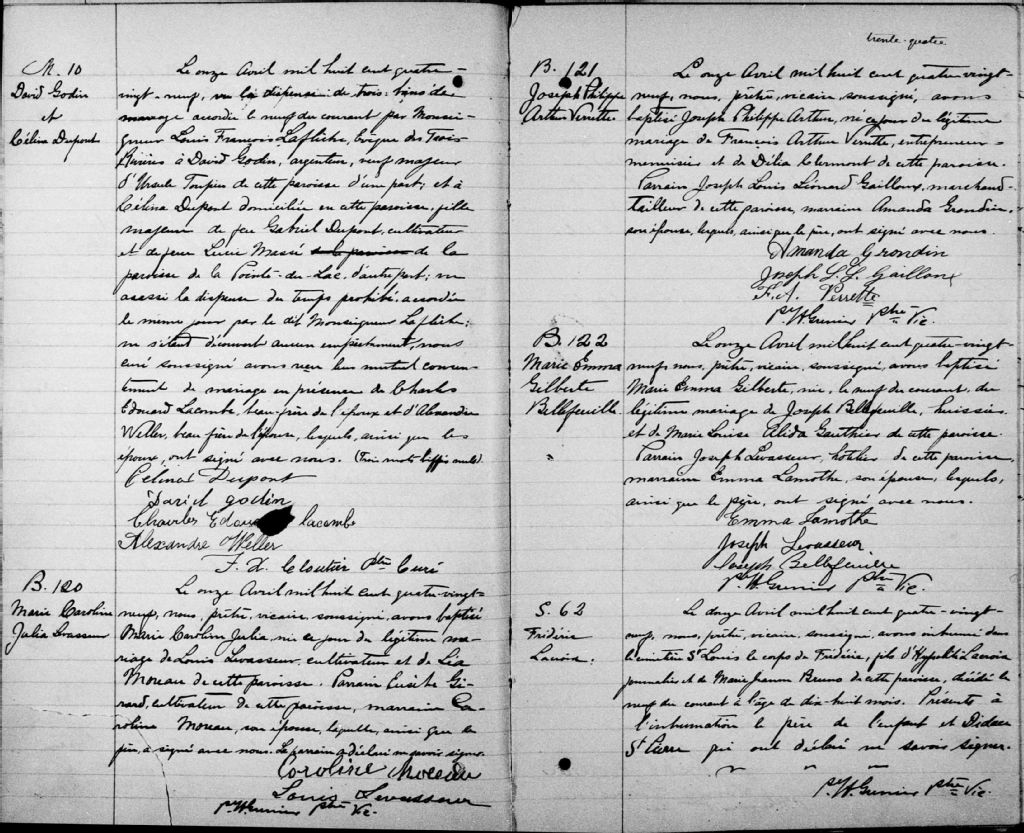 M. 10
David Godin
et
Célina Dupont
Le onze Avril mil huit cent quatre-
vingt-neuf, vu la dispense de trois bans de
mariage accordée le neuf du courant par Monsei-
gneur Louis François Laflèche, évêque des Trois
Rivières à David Godin, argenteur, veuf majeur
d'Ursule Toupin de cette paroisse d'une part; et à
Célina Dupont domiciliée en cette paroisse, fille
majeure de feu Gabriel Dupont, cultivateur
et de feue Lucie Massé de la paroisse de la
paroisse de la Pointe-du-Lac, d'autre part; vu
aussi la dispense du temps prohibé accordée
le même jour par le dit Monseigneur Laflèche;
ne s'étant découvert aucun empêchement, nous
curé soussigné avons reçu leur mutuel consen-
tement de mariage en présence de Charles
Edouard Lacombe, beau-frère de l'époux et d'Alexandre
Weller, beau frère de l'épouse, lesquels, ainsi que les
époux, ont signé avec nous. (Trois mots biffés nuls).
Celina Dupont
David godin
Charles Edou lacombe
Alexandre Weller
F. X. Cloutier Ptre Curé
B. 120
Marie Caroline
Julia Levasseur
Le onze Avril mil huit cent quatre-vingt-
neuf, nous, prêtre, vicaire, soussigné, avons baptisé
Marie Caroline Julia, née ce jour du légitime ma-
riage de Louis Levasseur, cultivateur et de Léa
Moreau de cette paroisse. Parrain Gi-
rard, cultivateur de cette paroisse, marraine Ca-
roline Moreau, son épouse, laquelle, ainsi que le
père, a signé avec nous. Le parrain a déclaré ne savoir signer.
Caroline Moreau
Louis Levasseur
P. W. Grenier Ptre Vic.
trente-quatre
B. 121
Joseph Philippe
Arthur Verrette
Le onze Avril mil huit cent quatre-vingt-
neuf, nous, prêtre, vicaire, soussigné, avons
baptisé Joseph Philippe Arthur, né ce jour du légitime
mariage de François Arthur Verrette, entrepreneur-
menuisier et de Délia Clermont de cette paroisse.
Parrain Joseph Louis Léonard Gailloux, marchand-
tailleur de cette paroisse, marraine Amanda Grondin,
son épouse, lesquels, ainsi que le père, ont signé avec nous.
Amanda Grondin
Joseph L. L. Gailloux
F. A. Verrette
P. W. Grenier ptre Vic.
B. 122
Marie Emma
Gilberte
Bellefeuille
Le onze Avril mil huit cent quatre-vingt-
neuf, nous, prêtre, vicaire, soussigné, avons baptisé
Marie Emma Gilberte, née, le neuf du courant, du
légitime mariage de Joseph Bellefeuille, huissier
et de Marie Louise Alida Gauthier de cette paroisse.
Parrain Joseph Levasseur, hôtelier de cette paroisse,
marraine Emma Lamothe, son épouse, lesquels,
ainsi que le père, ont signé avec nous.
Emma Lamothe
Joseph Levasseur
Joseph Bellefeuille
P. W. Grenier ptre Vic.
S. 62
Frédéric
Lacroix.
Le douze Avril mil huit cent quatre-vingt-
neuf, nous, prêtre, vicaire, soussigné, avons inhumé dans
le cimetière St Louis le corps de Frédéric, fils d'Hypolite Lacroix
journalier et de Marie Jeanne Bruno de cette paroisse, décédé le
neuf du courant à l'âge de dix-huit mois. Présents à
l'inhumation le père de l'enfant et Didace
St Pierre qui ont déclaré ne savoir signer.
P. W. Grenier ptre Vic.